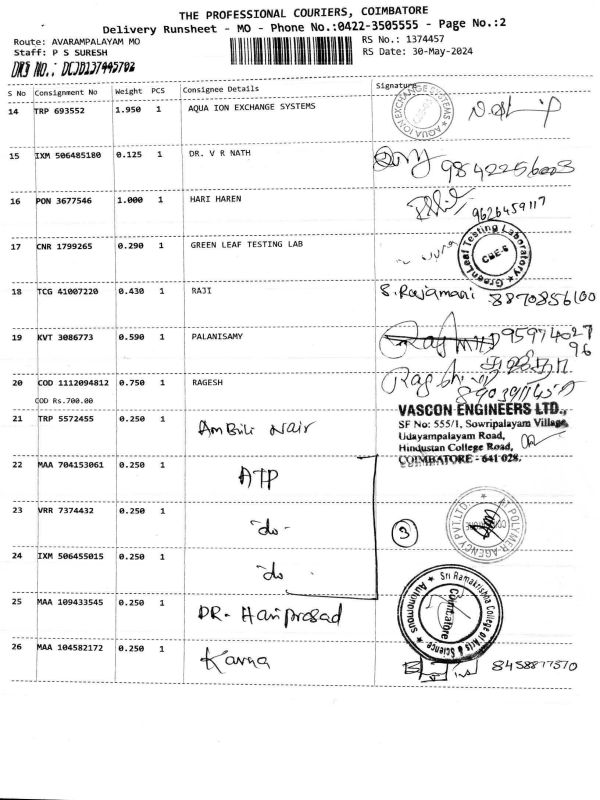 THE PROFESSIONAL COURIERS, COIMBATORE
Delivery Runsheet - MO - Phone No.:0422-3505555 - Page No.:2
Route: AVARAMPALAYAM MO RS No.: 1374457
Staff: P S SURESH RS Date: 30-May-2024
DRS NO.: DCJB137445702
S No Consignment No Weight PCS Consignee Details Signature
14 TRP 693552 1.950 1 AQUA ION EXCHANGE SYSTEMS
AQUA ION EXCHANGE SYSTEMS
15 IXM 506485180 0.125 1 DR. V R NATH
16 PON 3677546 1.000 1 HARI HAREN 9626459117
17 CNR 1799265 0.290 1 GREEN LEAF TESTING LAB
GreenLeaf Testing Laboratory
CBE-6
18 TCG 41007220 0.430 1 RAJI S. Rajamani 8870856100
19 KVT 3086773 0.590 1 PALANISAMY 9597402796
20 COD 1112094812 0.750 1 RAGESH
COD Rs.700.00
21 TRP 5572455 0.250 1 Ambili Nair
VASCON ENGINEERS LTD.,
SF No: 555/1, Sowripalayam Village,
Udayampalayam Road,
Hindustan College Road,
COIMBATORE - 641 028.
22 MAA 704153061 0.250 1 ATP
23 VRR 7374432 0.250 1 -do- 3
AT POLYMER AGENCY PVT.LTD.
24 IXM 506455015 0.250 1 -do-
25 MAA 109433545 0.250 1 DR. Hari prasad
Sri Ramakrishna College of Arts & Science
Autonomous
Coimbatore
26 MAA 104582172 0.250 1 Karna 8458877510